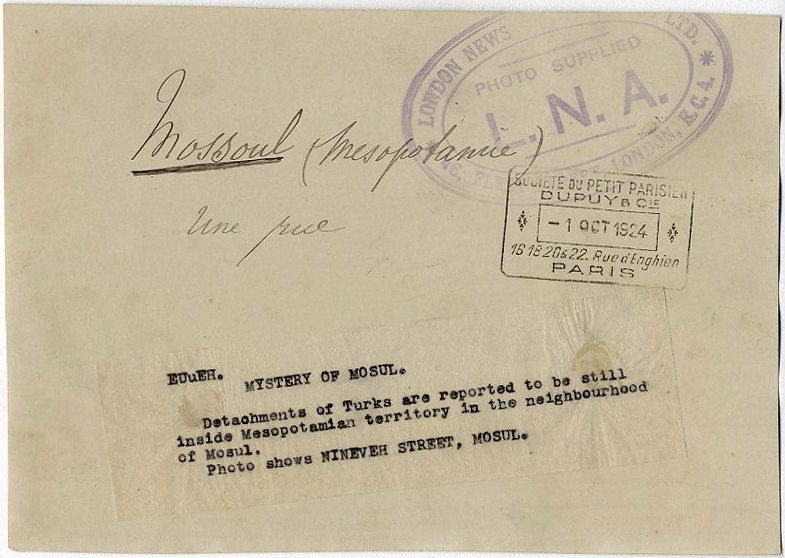 LONDON NEWS LTD. *
PHOTO SUPPLIED
L. N. A.
46, FLEET LONDON, E.C.4.
Mossoul (Mesopotamie)
SOCIÉTÉ DU PETIT PARISIEN
DUPUY & CIE
- 1 OCT 1924
16 18 20 & 22. Rue d'Enghien
PARIS
Une rue
EUuEH. MYSTERY OF MOSUL.
Detachments of Turks are reported to be still
inside Mesopotamian territory in the neighbourhood
of Mosul.
Photo shows NINEVEH STREET, MOSUL.